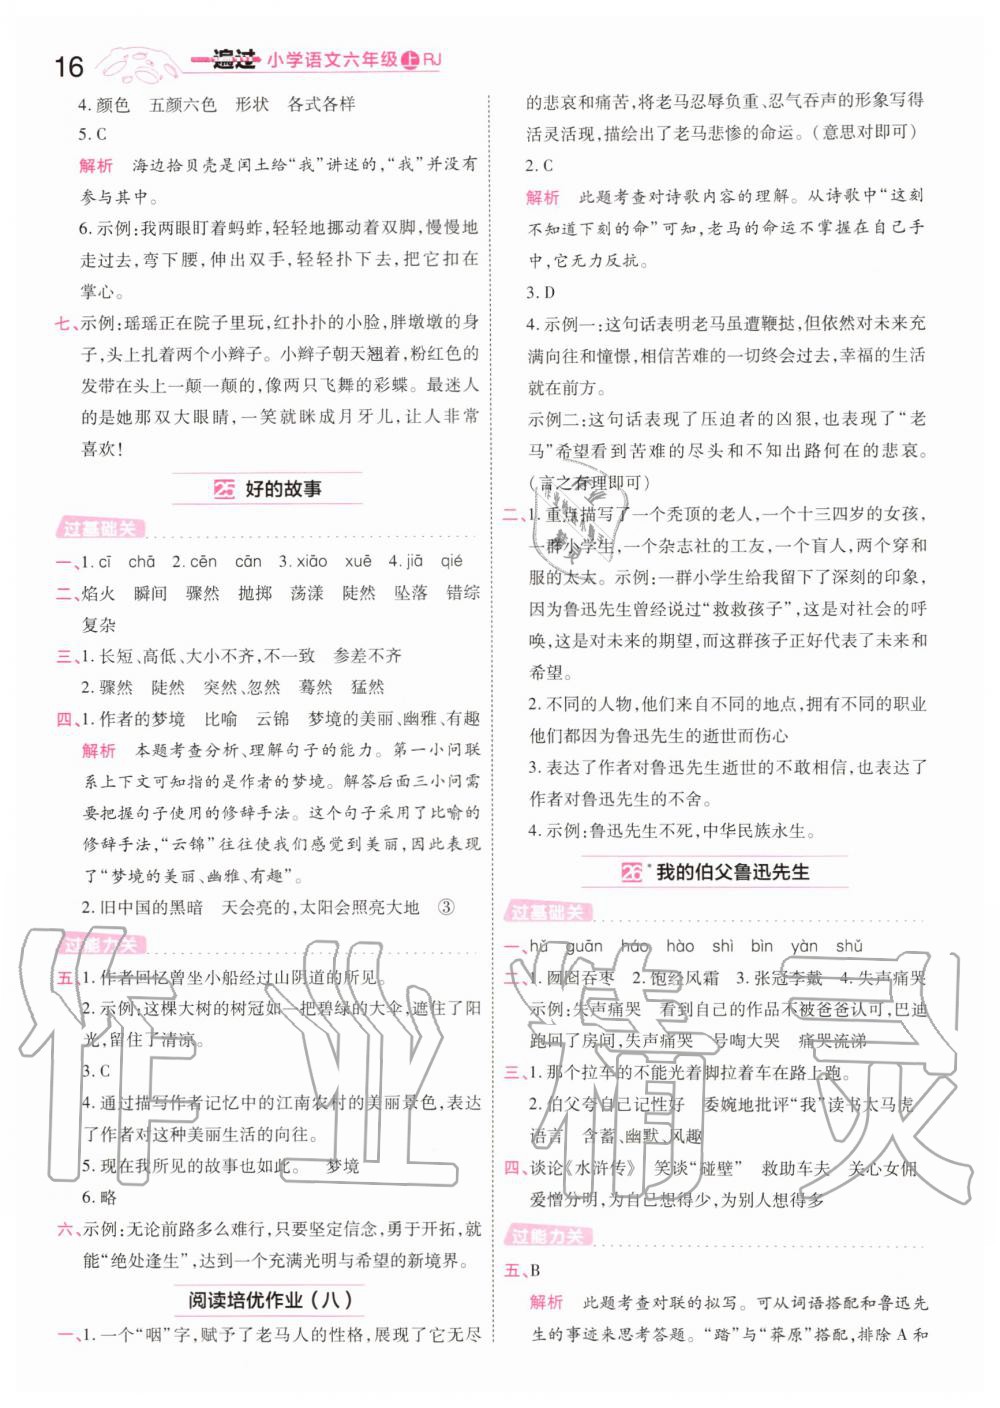 16
一遍过 小学语文六年级 上 RJ
4. 颜色 五颜六色 形状 各式各样
5. C
解析 海边拾贝壳是闰土给“我”讲述的,“我”并没有
参与其中。
6. 示例:我两眼盯着蚂蚱,轻轻地挪动着双脚,慢慢地
走过去,弯下腰,伸出双手,轻轻扑下去,把它扣在
掌心。
七、示例:瑶瑶正在院子里玩,红扑扑的小脸,胖墩墩的身
子,头上扎着两个小辫子。小辫子朝天翘着,粉红色的
发带在头上一颠一颠的,像两只飞舞的彩蝶。最迷人
的是她那双大眼睛,一笑就眯成月牙儿,让人非常
喜欢!
25 好的故事
过基础关
一、1. cī chā 2. cēn cān 3. xiāo xuē 4. jiā qié
二、焰火 瞬间 骤然 抛掷 荡漾 陡然 坠落 错综
复杂
三、1. 长短、高低、大小不齐,不一致 参差不齐
2. 骤然 陡然 突然、忽然 蓦然 猛然
四、1. 作者的梦境 比喻 云锦 梦境的美丽、幽雅、有趣
解析 本题考查分析、理解句子的能力。第一小问联
系上下文可知指的是作者的梦境。解答后面三小问需
要把握句子使用的修辞手法。这个句子采用了比喻的
修辞手法,“云锦”往往使我们感觉到美丽,因此体现
了“梦境的美丽、幽雅、有趣”。
2. 旧中国的黑暗 天会亮的,太阳会照亮大地 ③
过能力关
五、1. 作者回忆曾坐小船经过山阴道的所见。
2. 示例:这棵大树的树冠如一把碧绿的大伞,遮住了阳
光,留住了清凉。
3. C
4. 通过描写作者记忆中的江南农村的美丽景色,表达
了作者对这种美丽生活的向往。
5. 现在我所见的故事也如此。 梦境
6. 略
六、示例:无论前路多么难行,只要坚定信念,勇于开拓,就
能“绝处逢生”,达到一个充满光明与希望的新境界。
阅读培优作业(八)
一、1. 一个“咽”字,赋予了老马人的性格,展现了它无尽
的悲哀和痛苦,将老马忍辱负重、忍气吞声的形象写得
活灵活现,描绘出了老马悲惨的命运。(意思对即可)
2. C
解析 此题考查对诗歌内容的理解。从诗歌中“这刻
不知道下刻的命”可知,老马的命运不掌握在自己手
中,它无力反抗。
3. D
4. 示例一:这句话表明老马虽遭鞭挞,但依然对未来充
满向往和憧憬,相信苦难的一切终会过去,幸福的生活
就在前方。
示例二:这句话表现了压迫者的凶狠,也表现了“老
马”希望看到苦难的尽头和不知出路何在的悲哀。
(言之有理即可)
二、1. 重点描写了一个秃顶的老人,一个十三四岁的女孩,
一群小学生,一个杂志社的工友,一个盲人,两个穿和
服的太太。示例:一群小学生给我留下了深刻的印象,
因为鲁迅先生曾经说过“救救孩子”,这是对社会的呼
唤,这是对未来的期望,而这群孩子正好代表了未来和
希望。
2. 不同的人物,他们来自不同的地点,拥有不同的职业
他们都因为鲁迅先生的逝世而伤心
3. 表达了作者对鲁迅先生逝世的不敢相信,也表达了
作者对鲁迅先生的不舍。
4. 示例:鲁迅先生不死,中华民族永生。
26* 我的伯父鲁迅先生
过基础关
一、hǔ guān háo hào shì bìn yàn shǔ
二、1. 囫囵吞枣 2. 饱经风霜 3. 张冠李戴 4. 失声痛哭
示例:失声痛哭 看到自己的作品不被爸爸认可,巴迪
跑回了房间,失声痛哭 号啕大哭 痛哭流涕
三、1. 那个拉车的不能光着脚拉着车在路上跑。
2. 伯父夸自己记性好 委婉地批评“我”读书太马虎
语言 含蓄、幽默、风趣
四、谈论《水浒传》 笑谈“碰壁” 救助车夫 关心女佣
爱憎分明,为自己想得少,为别人想得多
过能力关
五、B
解析 此题考查对联的拟写。可从词语搭配和鲁迅先
生的事迹来思考答题。“踏”与“莽原”搭配,排除 A 和
作业精灵